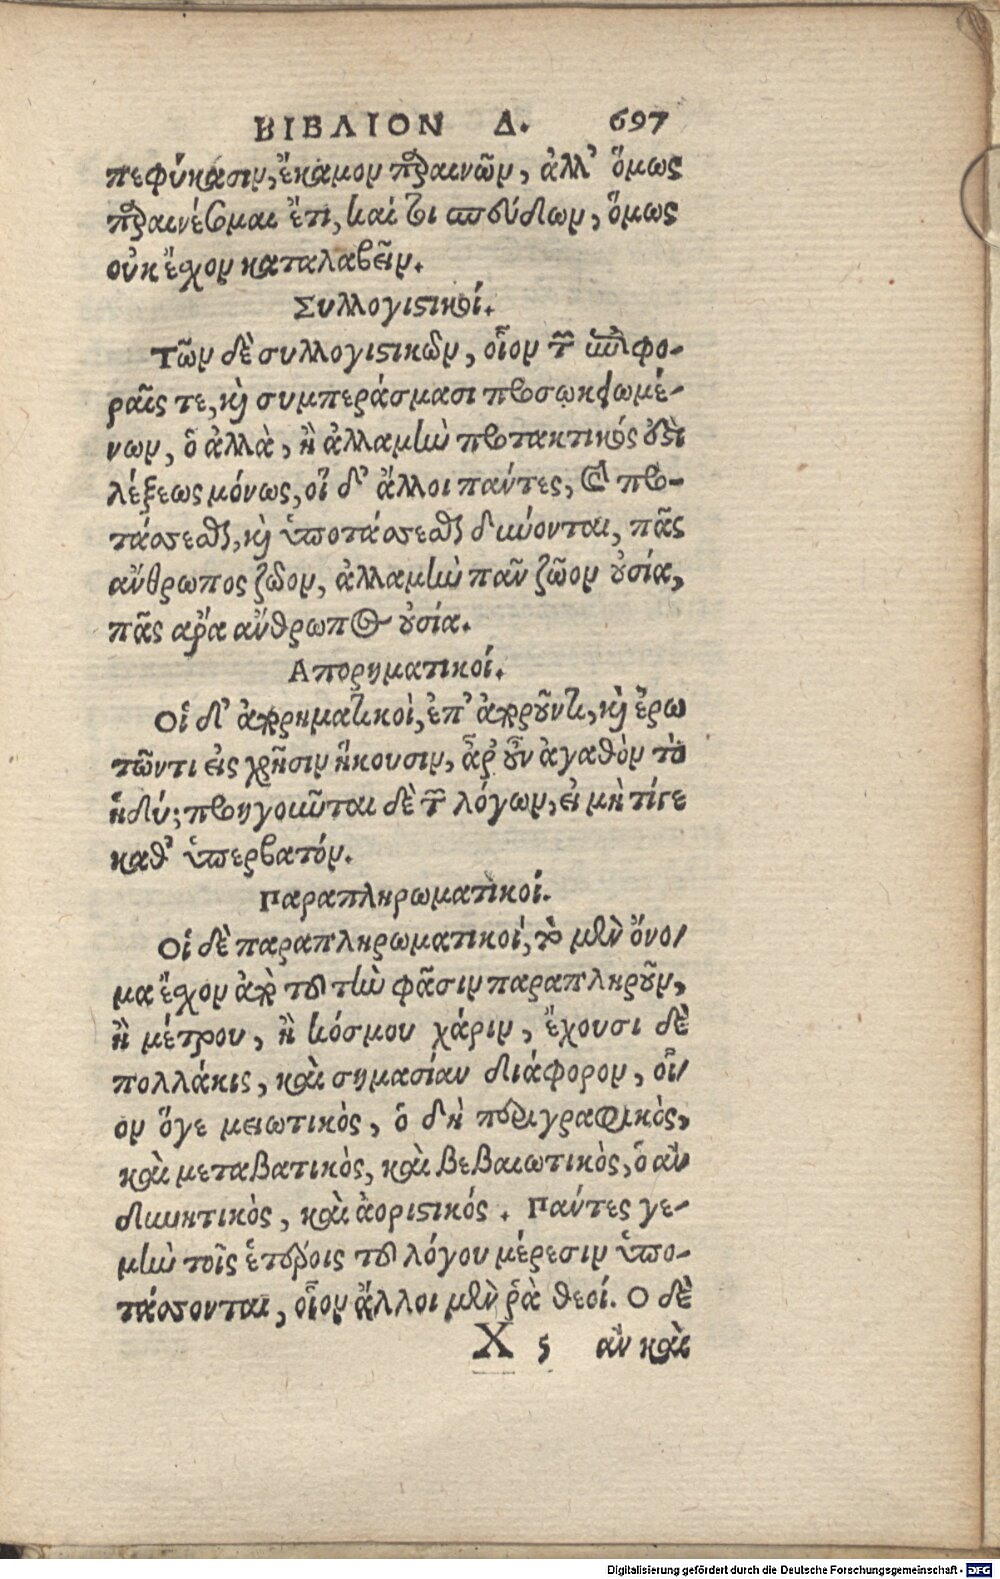 ΒΙΒΛΙΟΝ Δ. 697
πεφύκασιν, ἔκαμον παραινῶν, ἀλλ' ὅμως
παραινέσομαι ἔτι, καί τι σπεύδων, ὅμως
οὐκ ἔχον καταλαβεῖν.
Συλλογιστικοί.
Τῶν δὲ συλλογιστικῶν, οἷον τῶν ἐπιφο-
ραῖς τε, καὶ συμπεράσμασι προσῳκειωμέ-
νων, ὁ ἀλλὰ, ἢ ἀλλαμὴν προτακτικός ἐστι
λέξεως μόνως, οἱ δ' ἄλλοι πάντες, καὶ προ-
τάσσεσθαι, καὶ ὑποτάσσεσθαι δύνονται, πᾶς
ἄνθρωπος ζῶον, ἀλλαμὴν πᾶν ζῶον οὐσία,
πᾶς ἄρα ἄνθρωπος οὐσία.
Απορηματικοί.
Οἱ δ' ἀπορηματικοὶ, ἐπ' ἀποροῦντι, καὶ ἐρω
τῶντι εἰς χρῆσιν ἥκουσιν, ἆρ' οὖν ἀγαθὸν τὸ
ἡδύ; προηγοῦνται δὲ τῶν λόγων, εἰ μὴ τί γε
καθ' ὑπερβατόν.
Παραπληρωματικοί.
Οἱ δὲ παραπληρωματικοί, τὸ μὲν ὄνο/
μα ἔχον ἀπὸ τοῦ τὴν φᾶσιν παραπληροῦν,
ἢ μέτρου, ἢ κόσμου χάριν, ἔχουσι δὲ
πολλάκις, καὶ σημασίαν διάφορον, οἷ/
ον ὅγε μειωτικὸς, ὁ δὴ περιγραφικὸς,
καὶ μεταβατικὸς, καὶ βεβαιωτικὸς, ὁ ἂν
δυνητικὸς, καὶ ἀοριστικός. Πάντες γε-
μὴν τοῖς ἑτέροις τοῦ λόγου μέρεσιν ὑπο-
τάσσονται, οἷον ἄλλοι μὲν ῥὰ θεοί. Ο δὲ
X 5 ἂν καὶ
Digitalisierung gefördert durch die Deutsche Forschungsgemeinschaft - DFG